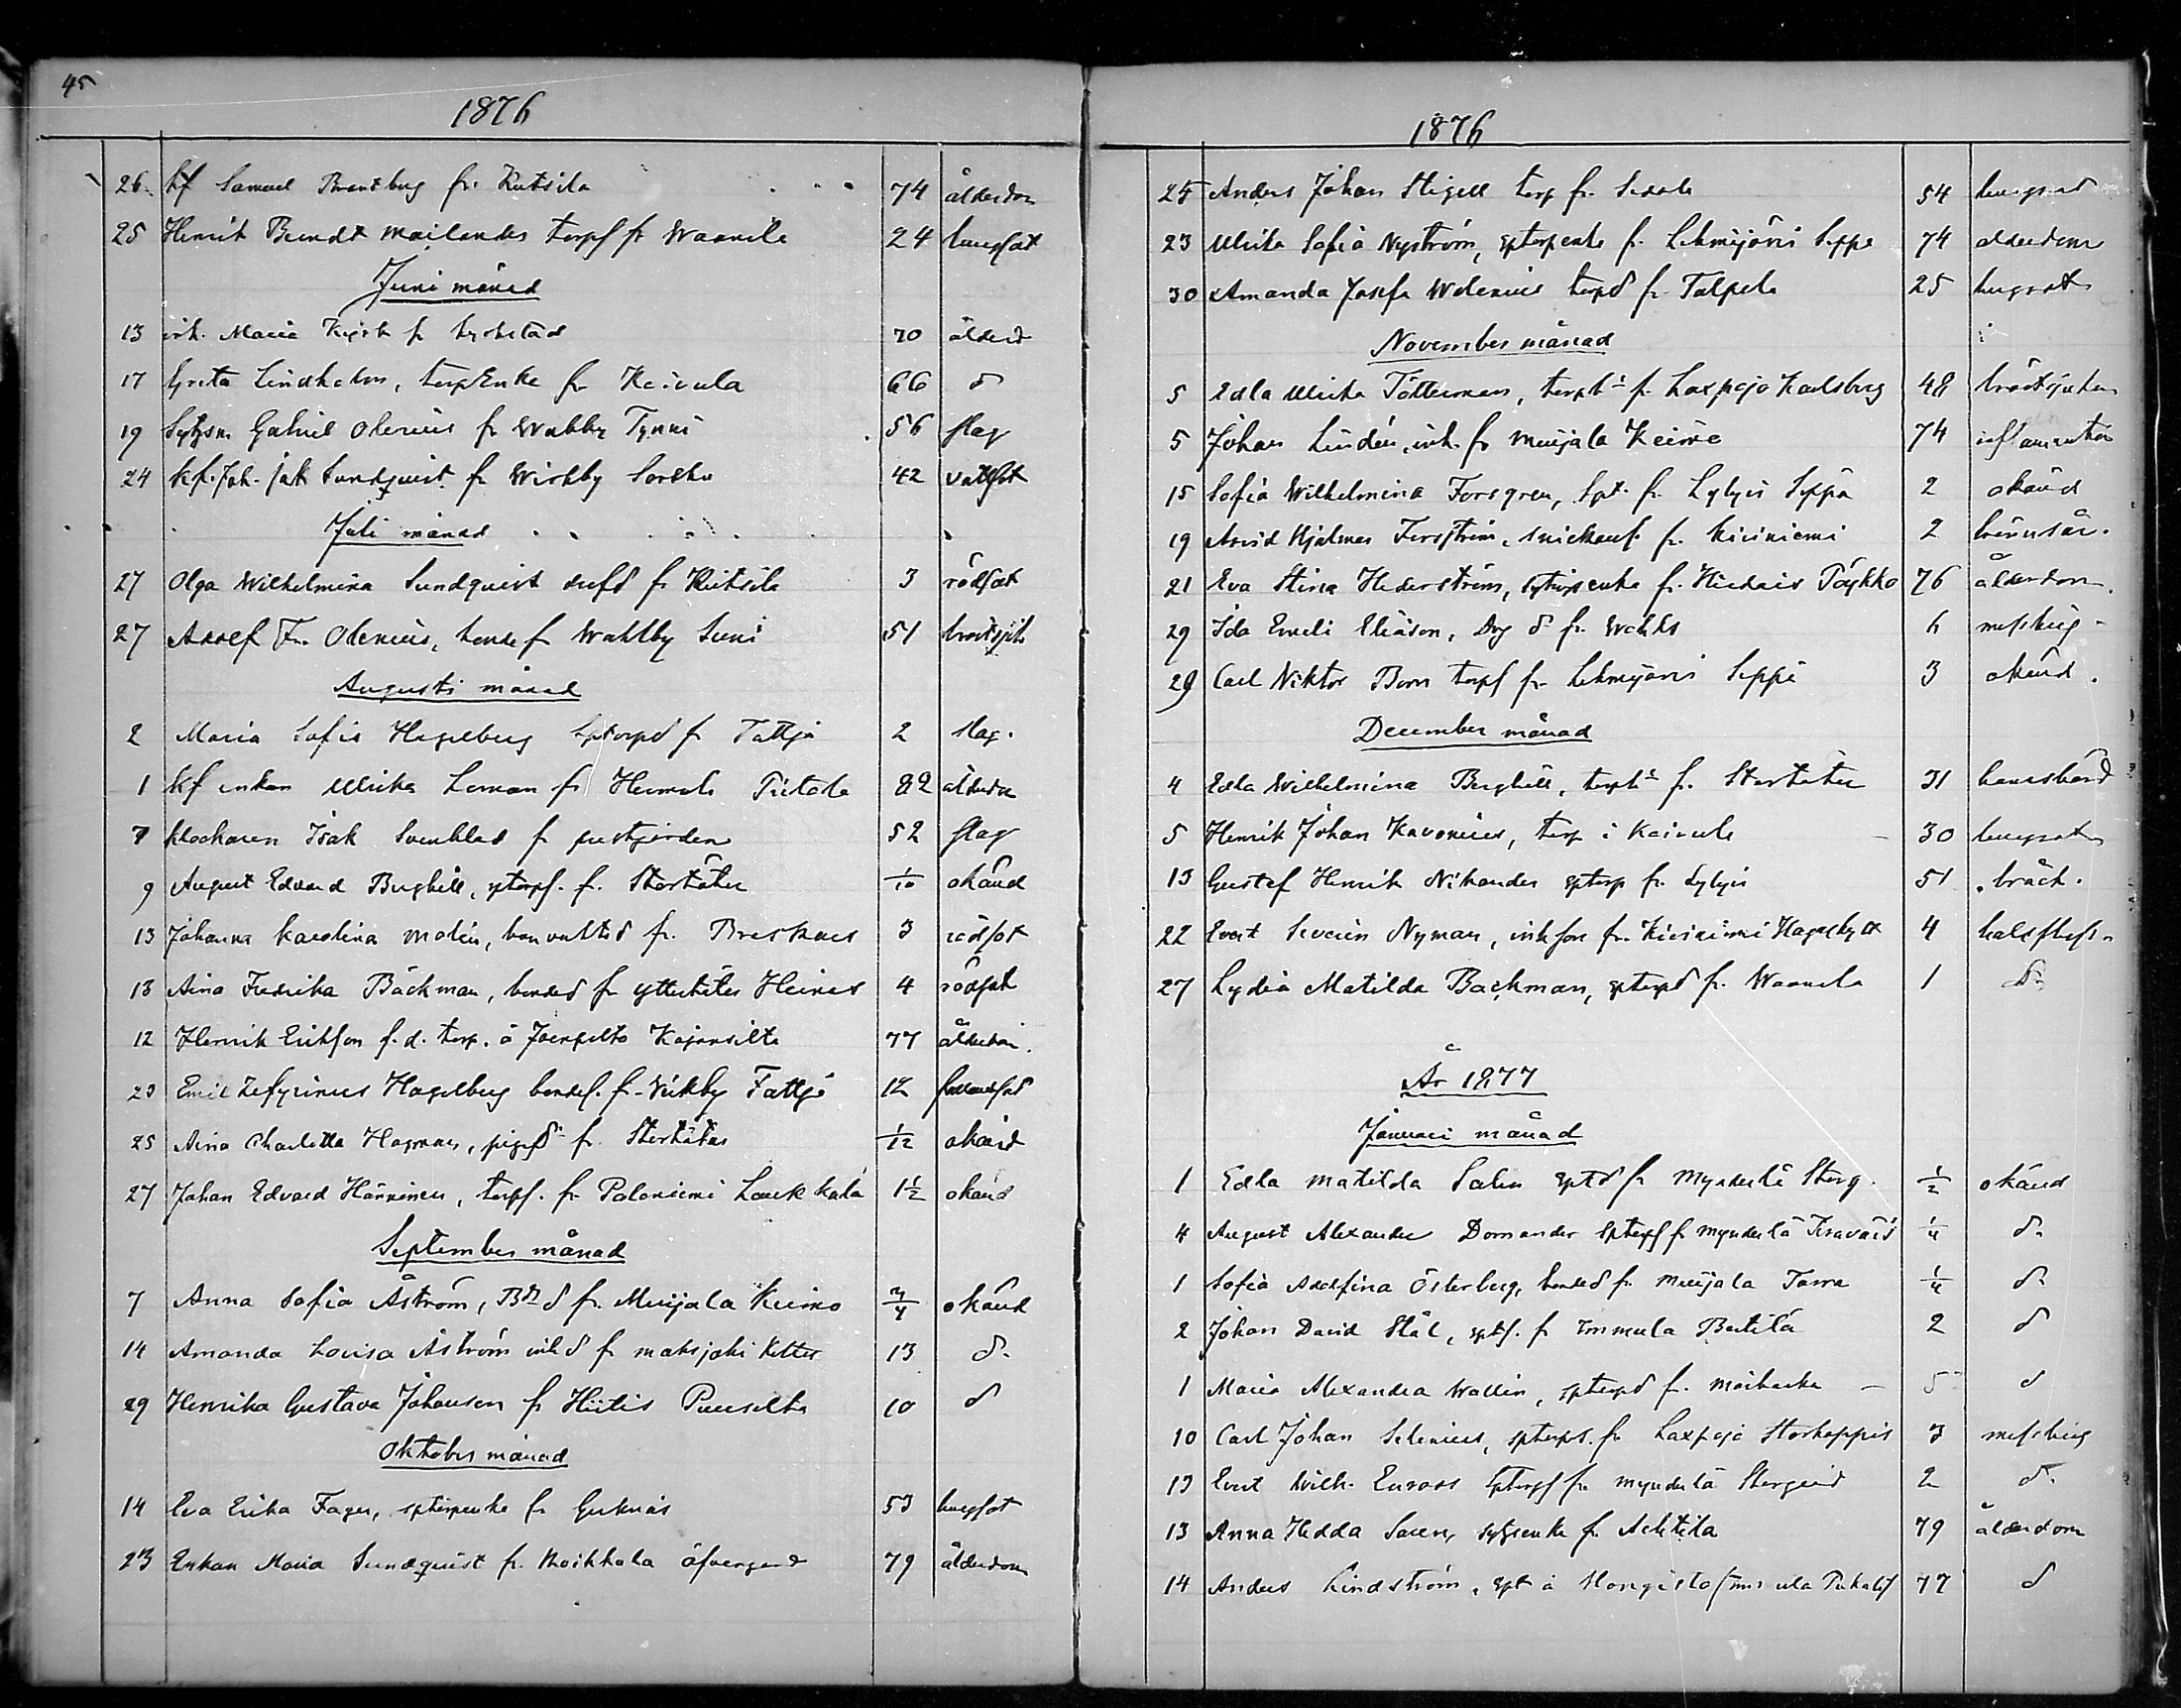 45
1876
26. kf Samuel Brantberg fr. Kutsila 74 ålderdom
25 Henrik Berndt Mailander torpf fr Waanila 24 lungsot
Juni månad
13 inh. Maria fr 70 ålderd
17 Greta Lindholm, torpEnka fr Koivula 66 d
19 Sytgsm. Gabriel Olenius fr Wahlby Tynni 56 slag
24 kf. Joh. Jak Sundquist fr Wirkby 42 vattsot
Juli månad
27 Olga Wilhelmina Sundquist fr Kutsila 3 rödsot
27 Adolf Fr. Olenius, bonde fr Wahlby Suni 51 bröstsjuk
Augusti månad
2 Maria Sofia Hagelberg sptorpd fr Tattja 2 slag.
1 kf enkan Ulrika Loman fr Pietola 82 ålderdom
7 klockaren Isak Svenblad fr prestgården 52 slag
9 August Edvard Berghäll, sptorpf. fr. Stortötar 1/10 okänd
13 Johanna Karolina Malin, fr. 3 rödsot
18 Aina Fredrika Bäckman, bonded fr Yttertötar Heinas 4 rödsot
12 Henrik Erikson f.d. torp. å Kajansilta 77 ålderdom.
23 Emil Zefyrinus Hagelberg bondes. fr. Virkby Tattjä 12
25 Aina Charlotta Hagman, pigd fr. Stortötar 1/12 okänd
27 Johan Edvard Hänninen, torpf. fr Paloniemi Laukkala 1 1/2 okänd
September månad
7 Anna Sofia Åström, Bnd d fr. Muijala Keimo 3/4 okänd
14 Amanda Lovisa Åström inhd fr maksjoki 13 d.
29 Henrika Gustava Johanson fr Hiitis Puusilta 10 d
Oktober månad
14 Eva Erika Fager, sptorpenka fr Gerknäs 53 lungsot
23 Enkan Maria Sundquist fr. Koikkala öfvergård 79 ålderdom
1876
25 Anders Johan Stigell torp fr. 54 lungsot
23 Ulrika Sofia Nyström, sptorpenka fr. Lehmijärvi Seppä 74 ålderdom
30 Amanda Josefa Wolenius torpd fr Talpela 25 lungsot
November månad
5 Edla Ulrika Tötterman, fr. Laxpojo Karlsberg 48 bröstsjukdom
5 Johan Lindén, inh. fr Muijala Keimo 74 inflammation
15 Sofia Wilhelmina Forsgren, spt. fr. Lylyis Seppä 2 okänd
19 Arvid Hjalmar Forsström, snickaref. fr. Kiviniemi 2 brännsår.
21 Eva Stina Hederström, fr. Hiidais Pöykkö 76 ålderdom.
29 Ida Emeli Eliason, Drg d fr. Wahls 6 messling
29 Carl Viktor Born torpf fr. Lehmijärvi Seppä 3 okänd.
December månad
4 Edla Wilhelmina Berghäll, fr. Stortötar 31 barnsbörd
5 Henrik Johan Kavonius, torp i Koivula 30 lungsot
13 Gustaf Henrik Nikander sptorp fr. Lylyis 51 bråck.
22 Evert Severin Nyman, inhson fr. Kiviniemi Hagaskytt 4 halsfluss
27 Lydia Matilda Backman, sptorpd fr. Waanila 1 d.
År 1877
Januari månad
1 Edla Matilda Salin sptd fr Mynderlä Storg. 1/2 okänd
4 August Alexander Domander sptorpf fr Mynderlä 1/4 d.
1 Sofia Adolfina Österberg, bonded fr. Muijala Tarra 1/4 d.
2 Johan David Stål, sptf. fr Immula Bertilä 2 d
1 Maria Alexandra Wallin, sptorpd fr. Maikarla 5 d
10 Carl Johan Selenius, sptorps. fr Laxpojo Storhoppis 3 messling
13 Evert Wilh. Enroos sptorpf fr. Mynderlä Storgård 2 d.
13 Anna Hedda Saren, fr. Achtila 79 ålderdom
14 Anders Lindström, spt å Hongisto 77 d